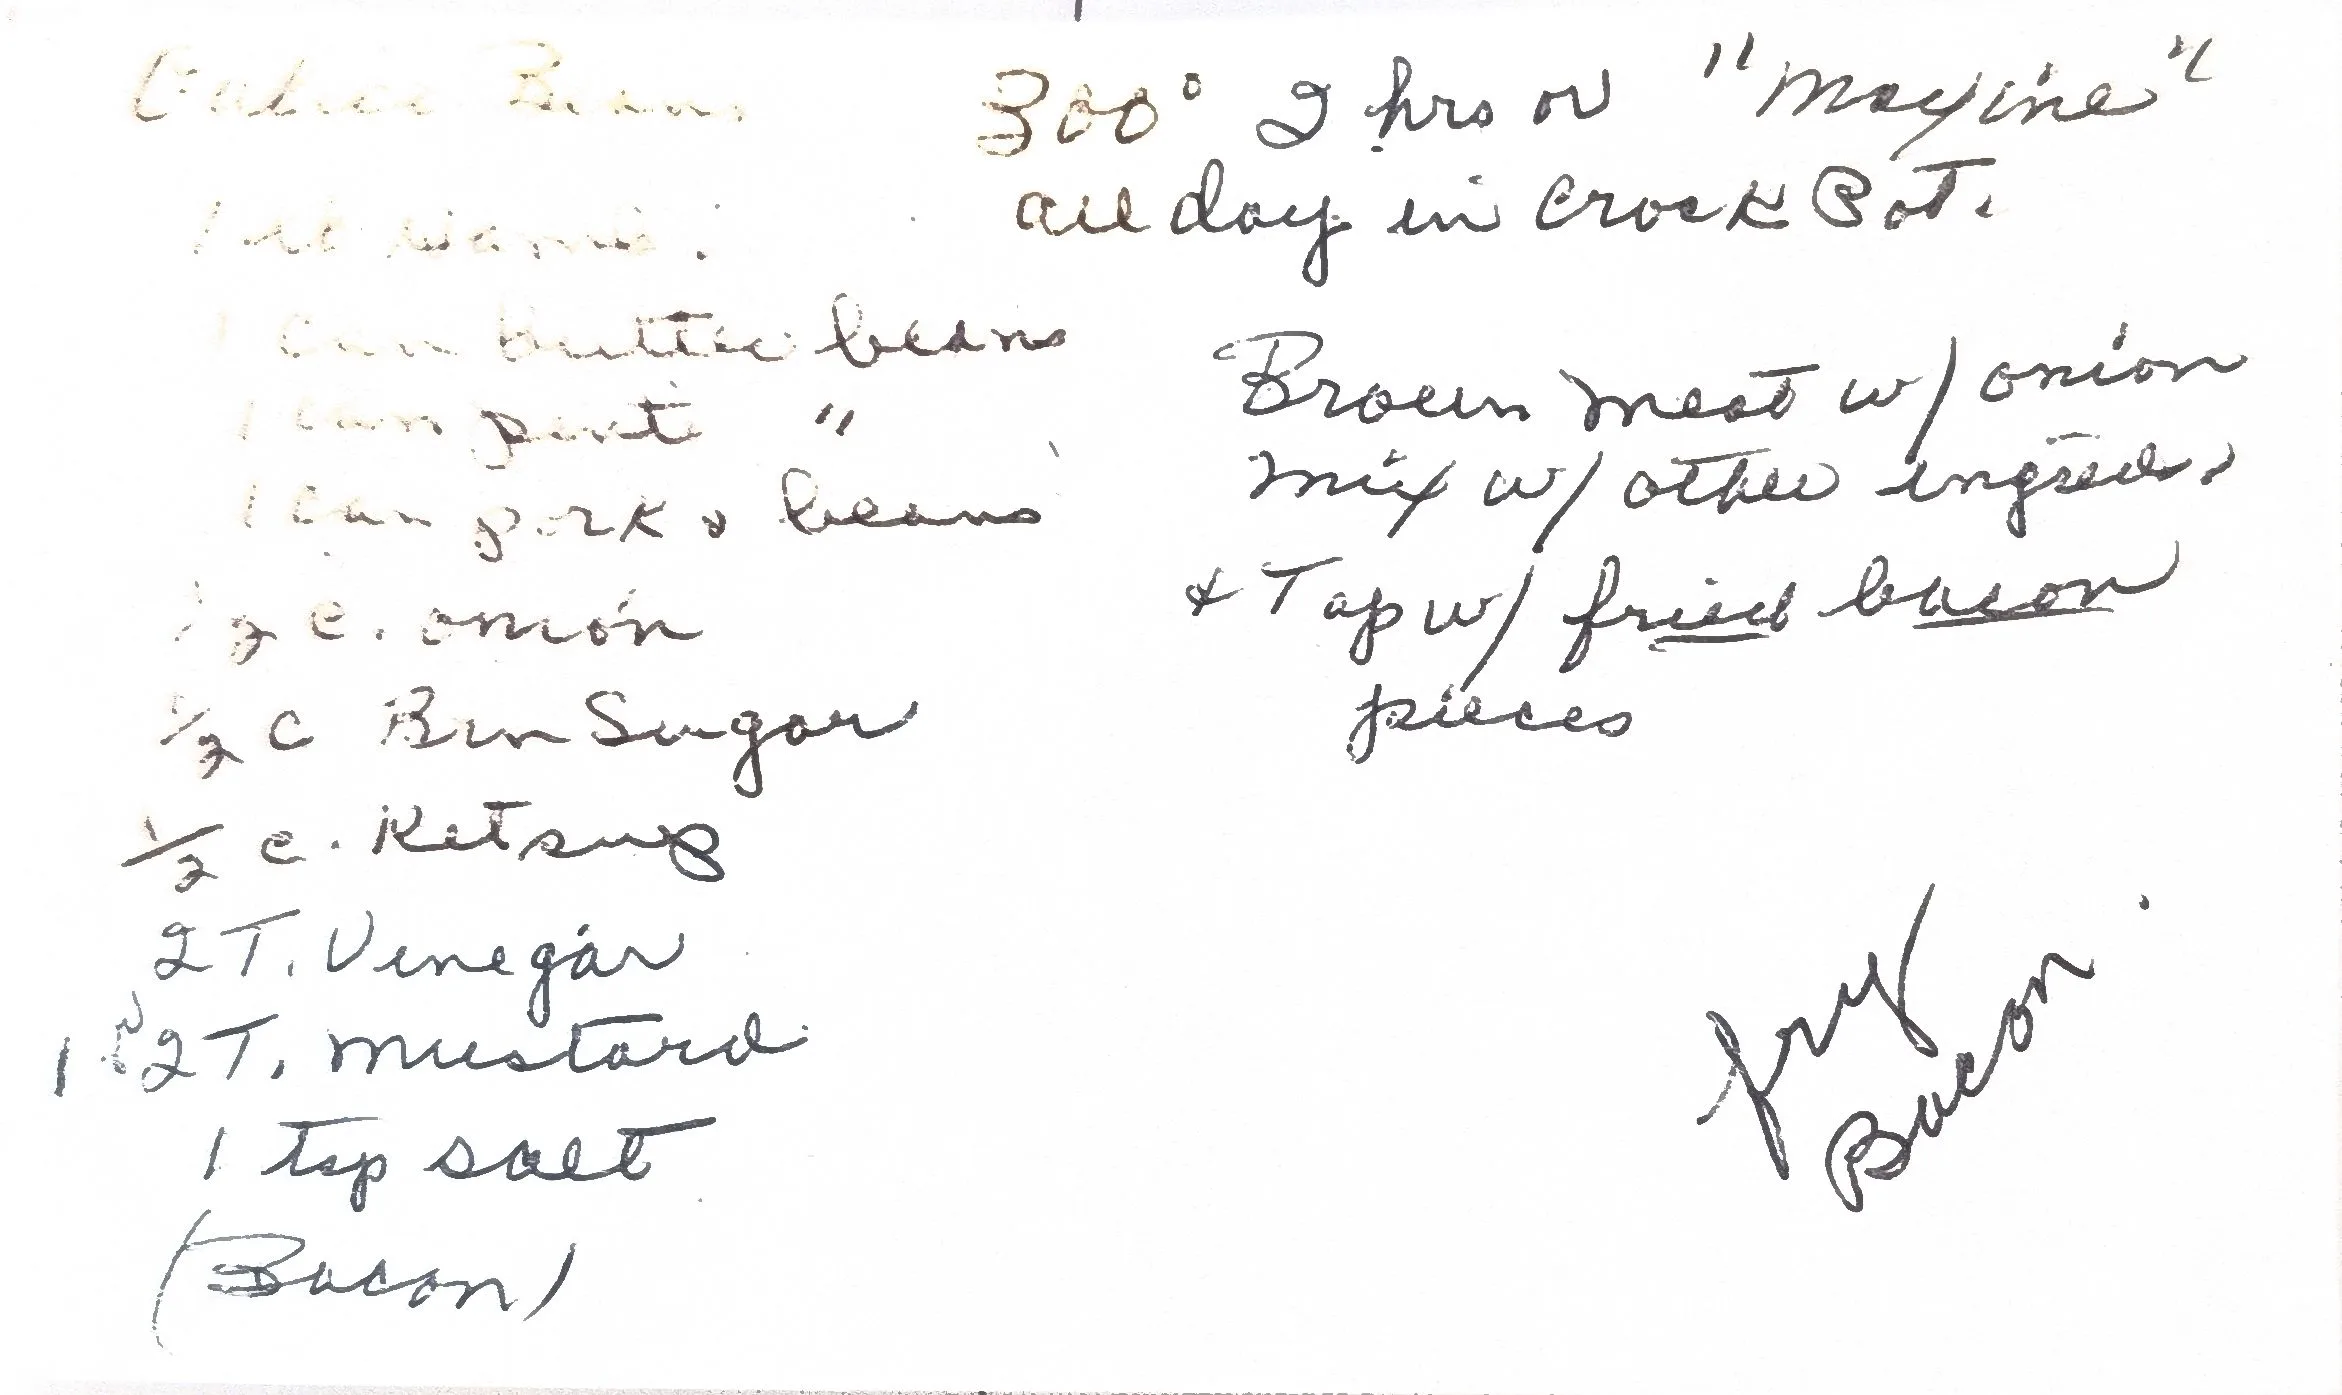 Calico Beans
300° 2 hrs or "Maxine"
all day in Crock Pot.
1
1 can butter beans
1 can pint "
1 can pork & beans
1/2 c. onion
1/2 c Brn Sugar
1/2 c. Ketsup
2 T. Vinegar
1 or 2 T. mustard
1 tsp salt
(Bacon)
Brown meat w/ onion
mix w/ other ingred.
& Top w/ fried bacon
pieces
fry
Bacon